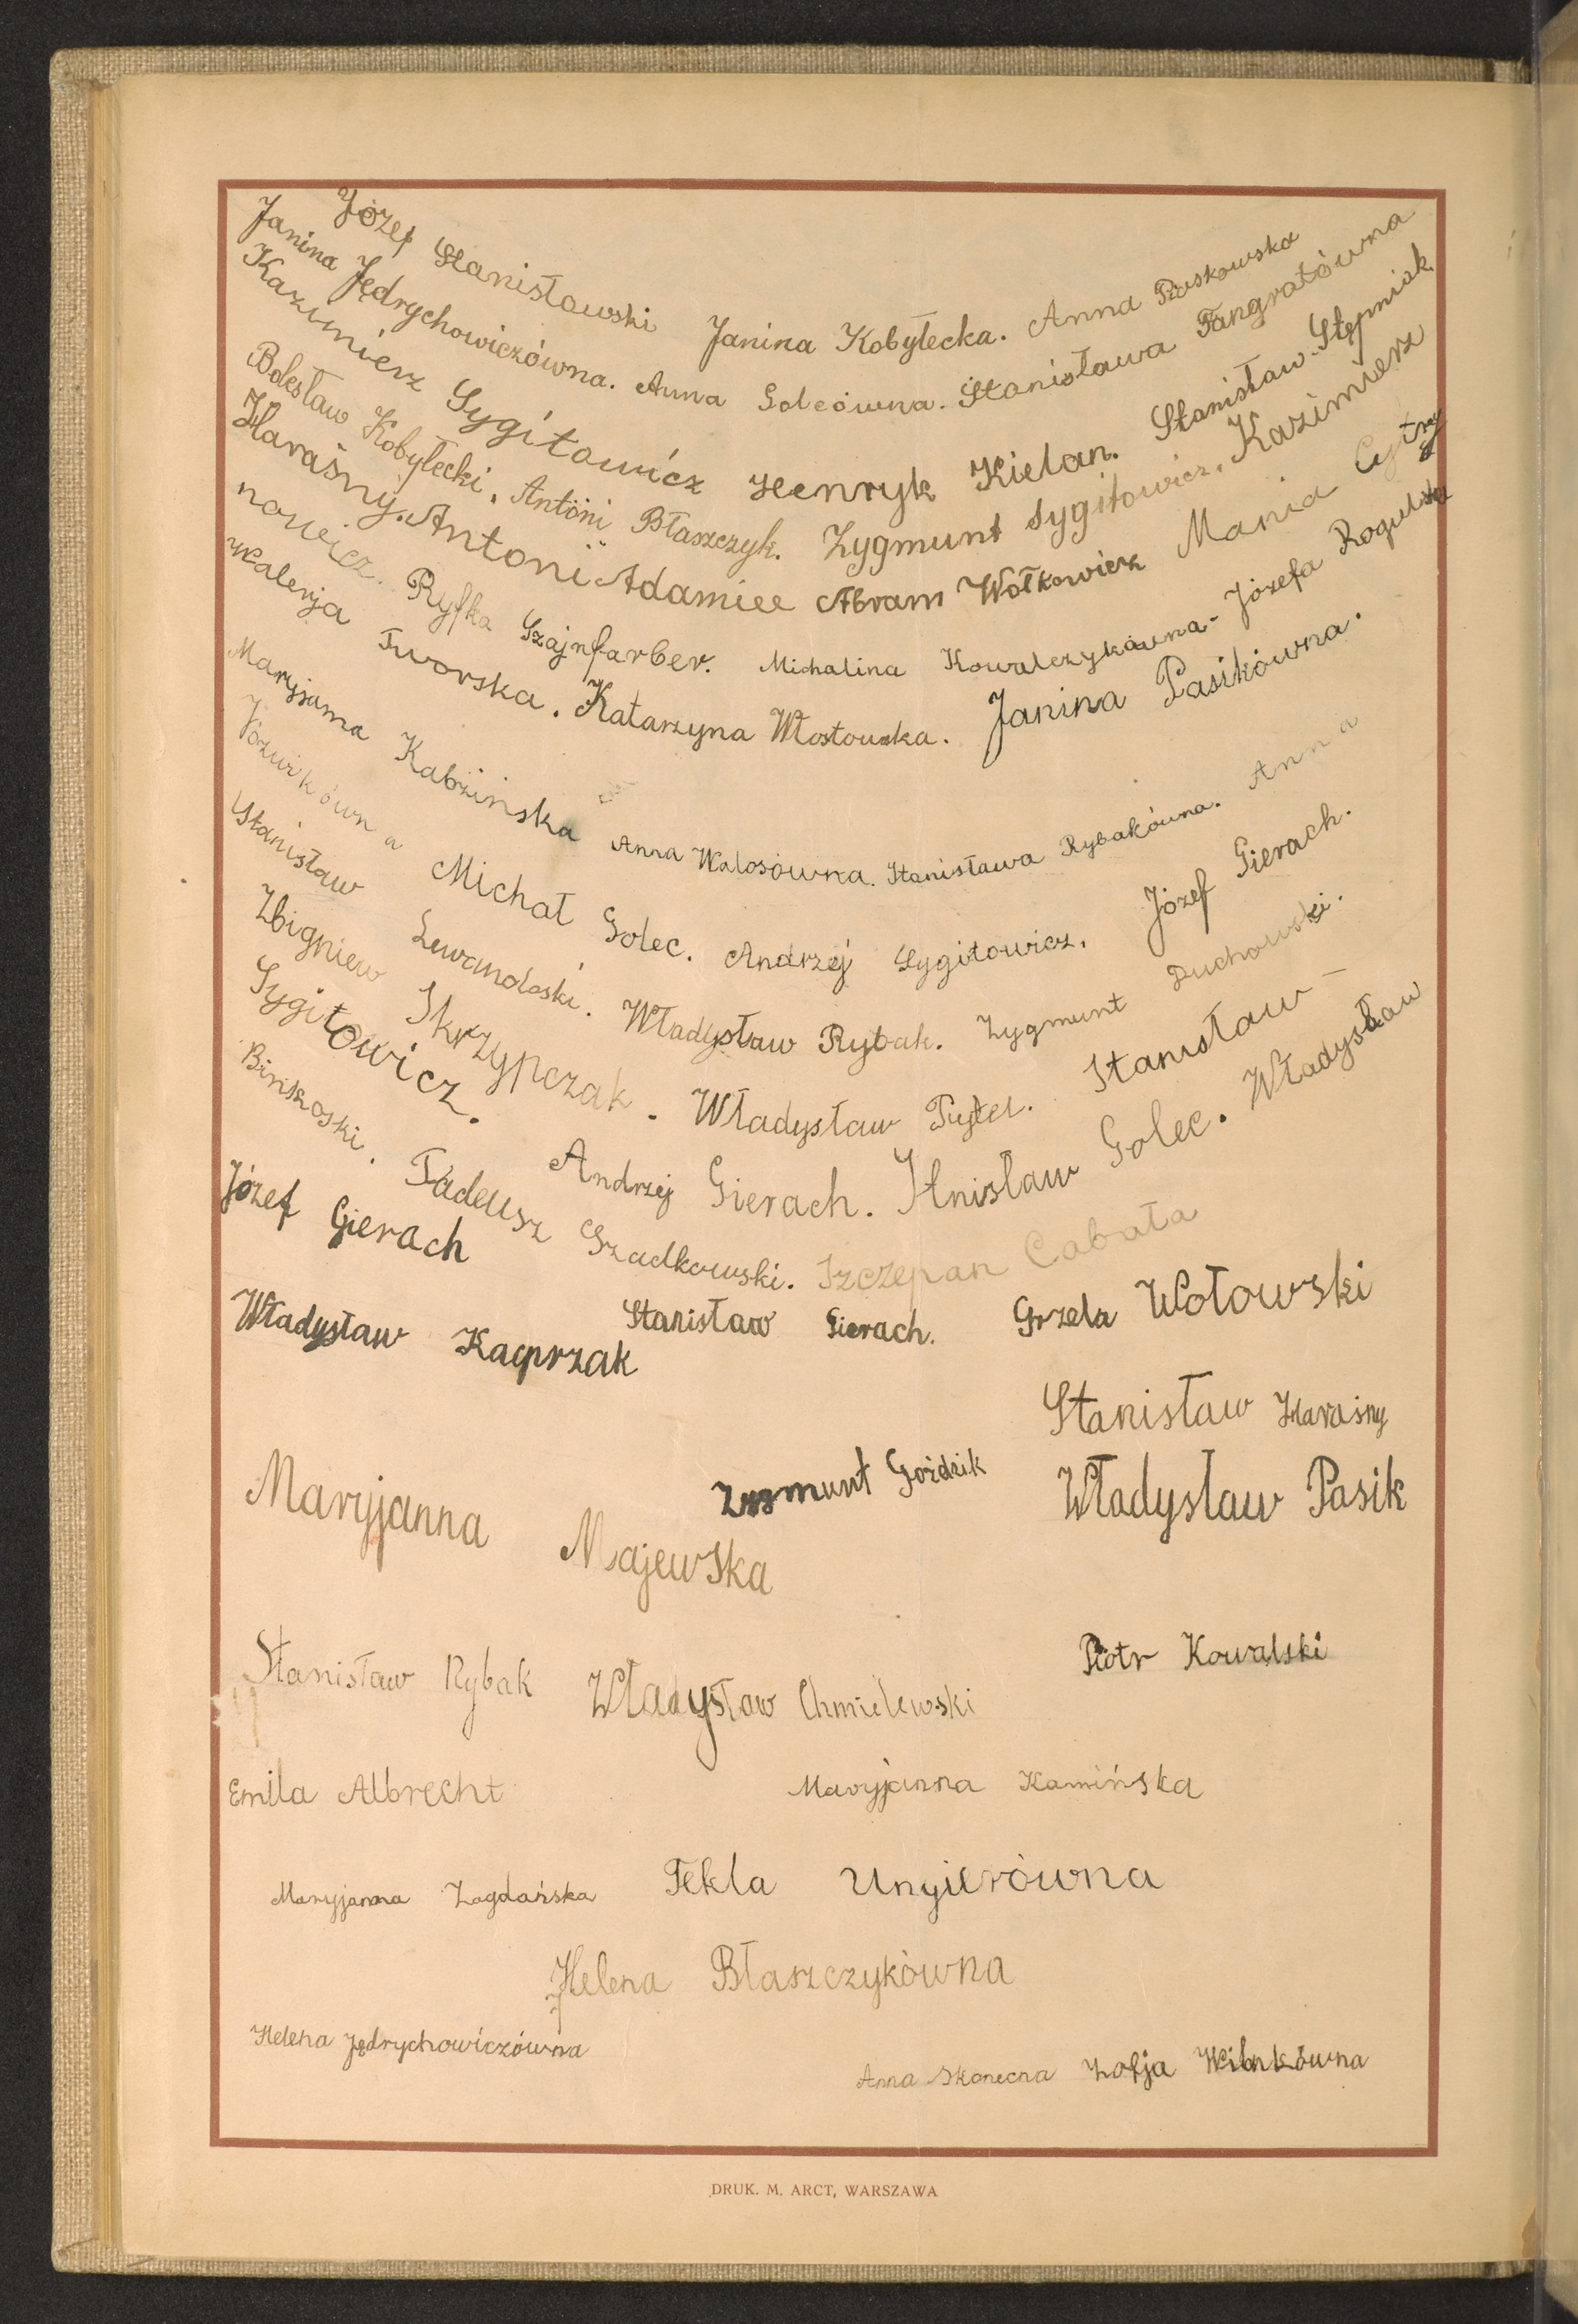 Józef Stanisławski Janina Kobyłecka. Anna Ruskowska
Janina Jędrychowiczówna. Anna Golcówna. Stanisława Pangratówna
Kazimierz Sygitowicz Henryk Kielan. Stanisław Stępniak
Bolesław Kobyłecki, Antoni Błaszczyk. Zygmunt Sygitowicz. Kazimierz
Haraśny. Antoni Adamiec Abram Wołkowicz Mania Cytry
nowicz. Ryfka Szajnfarber. Michalina Kowalczykówna- Józefa Rogulska
Walerja Tworska. Katarzyna Włostowska. Janina Pasikówna.
Maryjanna Kabzińska Anna Walosówna. Stanisława Rybakówna. Anna
Józwikówna Michał Golec. Andrzej Sygitowicz. Józef Gierach.
Stanisław Lewandoski. Władysław Rybak. Zygmunt Duchowski.
Zbigniew Skrzypczak. Władysław Pytel. Stanisław –
Sygitowicz. Andrzej Gierach. Stnisław Golec. Władysław
Binkoski. Tadeusz Szadkowski. Szczepan Cabała
Józef Gierach Stanisław Gierach. Grzela Wołowski
Władysław Kacprzak
Stanisław Haraśny
Maryjanna Majewska Zygmunt Goździk Władysław Pasik
Stanisław Rybak Władysław Chmielewski Piotr Kowalski
Emila Albrecht Maryjanna Kamińska
Maryjanna Zagdańska Tekla Ungierówna
Helena Błaszczykówna
Helena Jędrychowiczówna Anna Skonecna Zofja
DRUK. M. ARCT, WARSZAWA